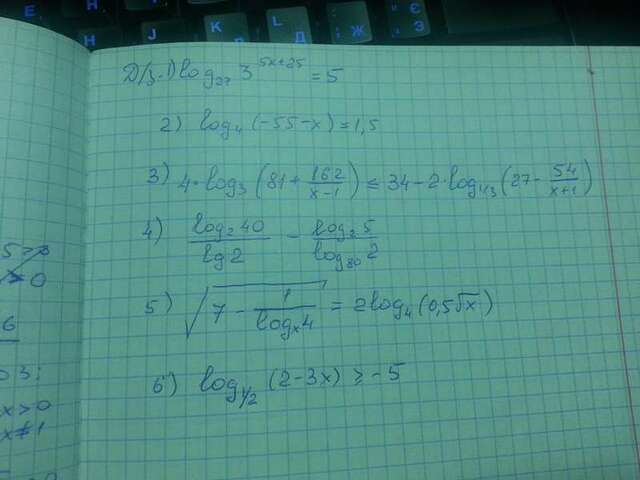 Д/з. 1) log₂₇ 3^(5x+25) = 5
2) log₄ (-55-x) = 1,5
3) 4·log₃ (81 + 162/(x-1)) ≤ 34 - 2·log₁/₃ (27 - 54/(x+1))
4) log₂ 40 / lg 2 - log₂ 5 / log₈₀ 2
5) √(7 - 1/logₓ4) = 2log₄ (0,5√x)
6) log₁/₂ (2-3x) ≥ -5
x > 0
x ≠ 1